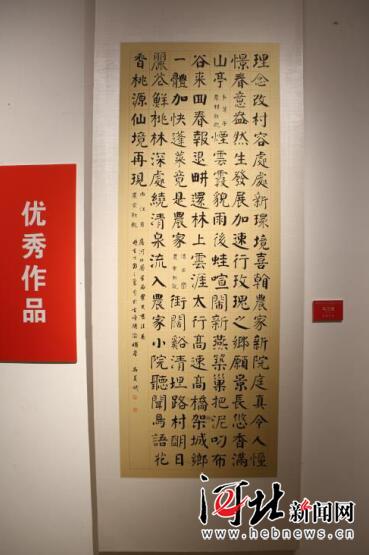 理念改村容處處新環境喜翰農家新院庭真令人憧
憬春意盎然生發展加速行玫瑰之鄉願景長悠香滿
山亭
煙雲霞貌雨後蛙喧鬧新燕築巢把泥叼布
谷來回春報退耕還林上雲涯太行高速高橋架城鄉
一體加快蓬萊竟是農家
街闊谿清坦路村朙日
麗谷鮮桃林深處繞清泉流入農家小院聽聞鳥語花
香桃源仙境再現
优秀作品
河北新闻网
www.hebnews.cn